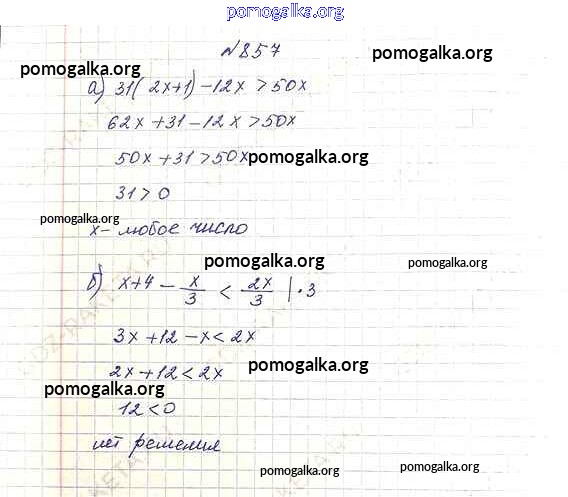 pomogalka.org
№857
pomogalka.org
pomogalka.org
а) 31(2x+1)-12x>50x
62x+31-12x>50x
50x+31>50x
pomogalka.org
31>0
pomogalka.org
x- любое число
pomogalka.org
pomogalka.org
б) x+4 - x/3 < 2x/3 |·3
3x+12-x<2x
2x+12<2x
pomogalka.org
pomogalka.org
12<0
нет решения
pomogalka.org
pomogalka.org